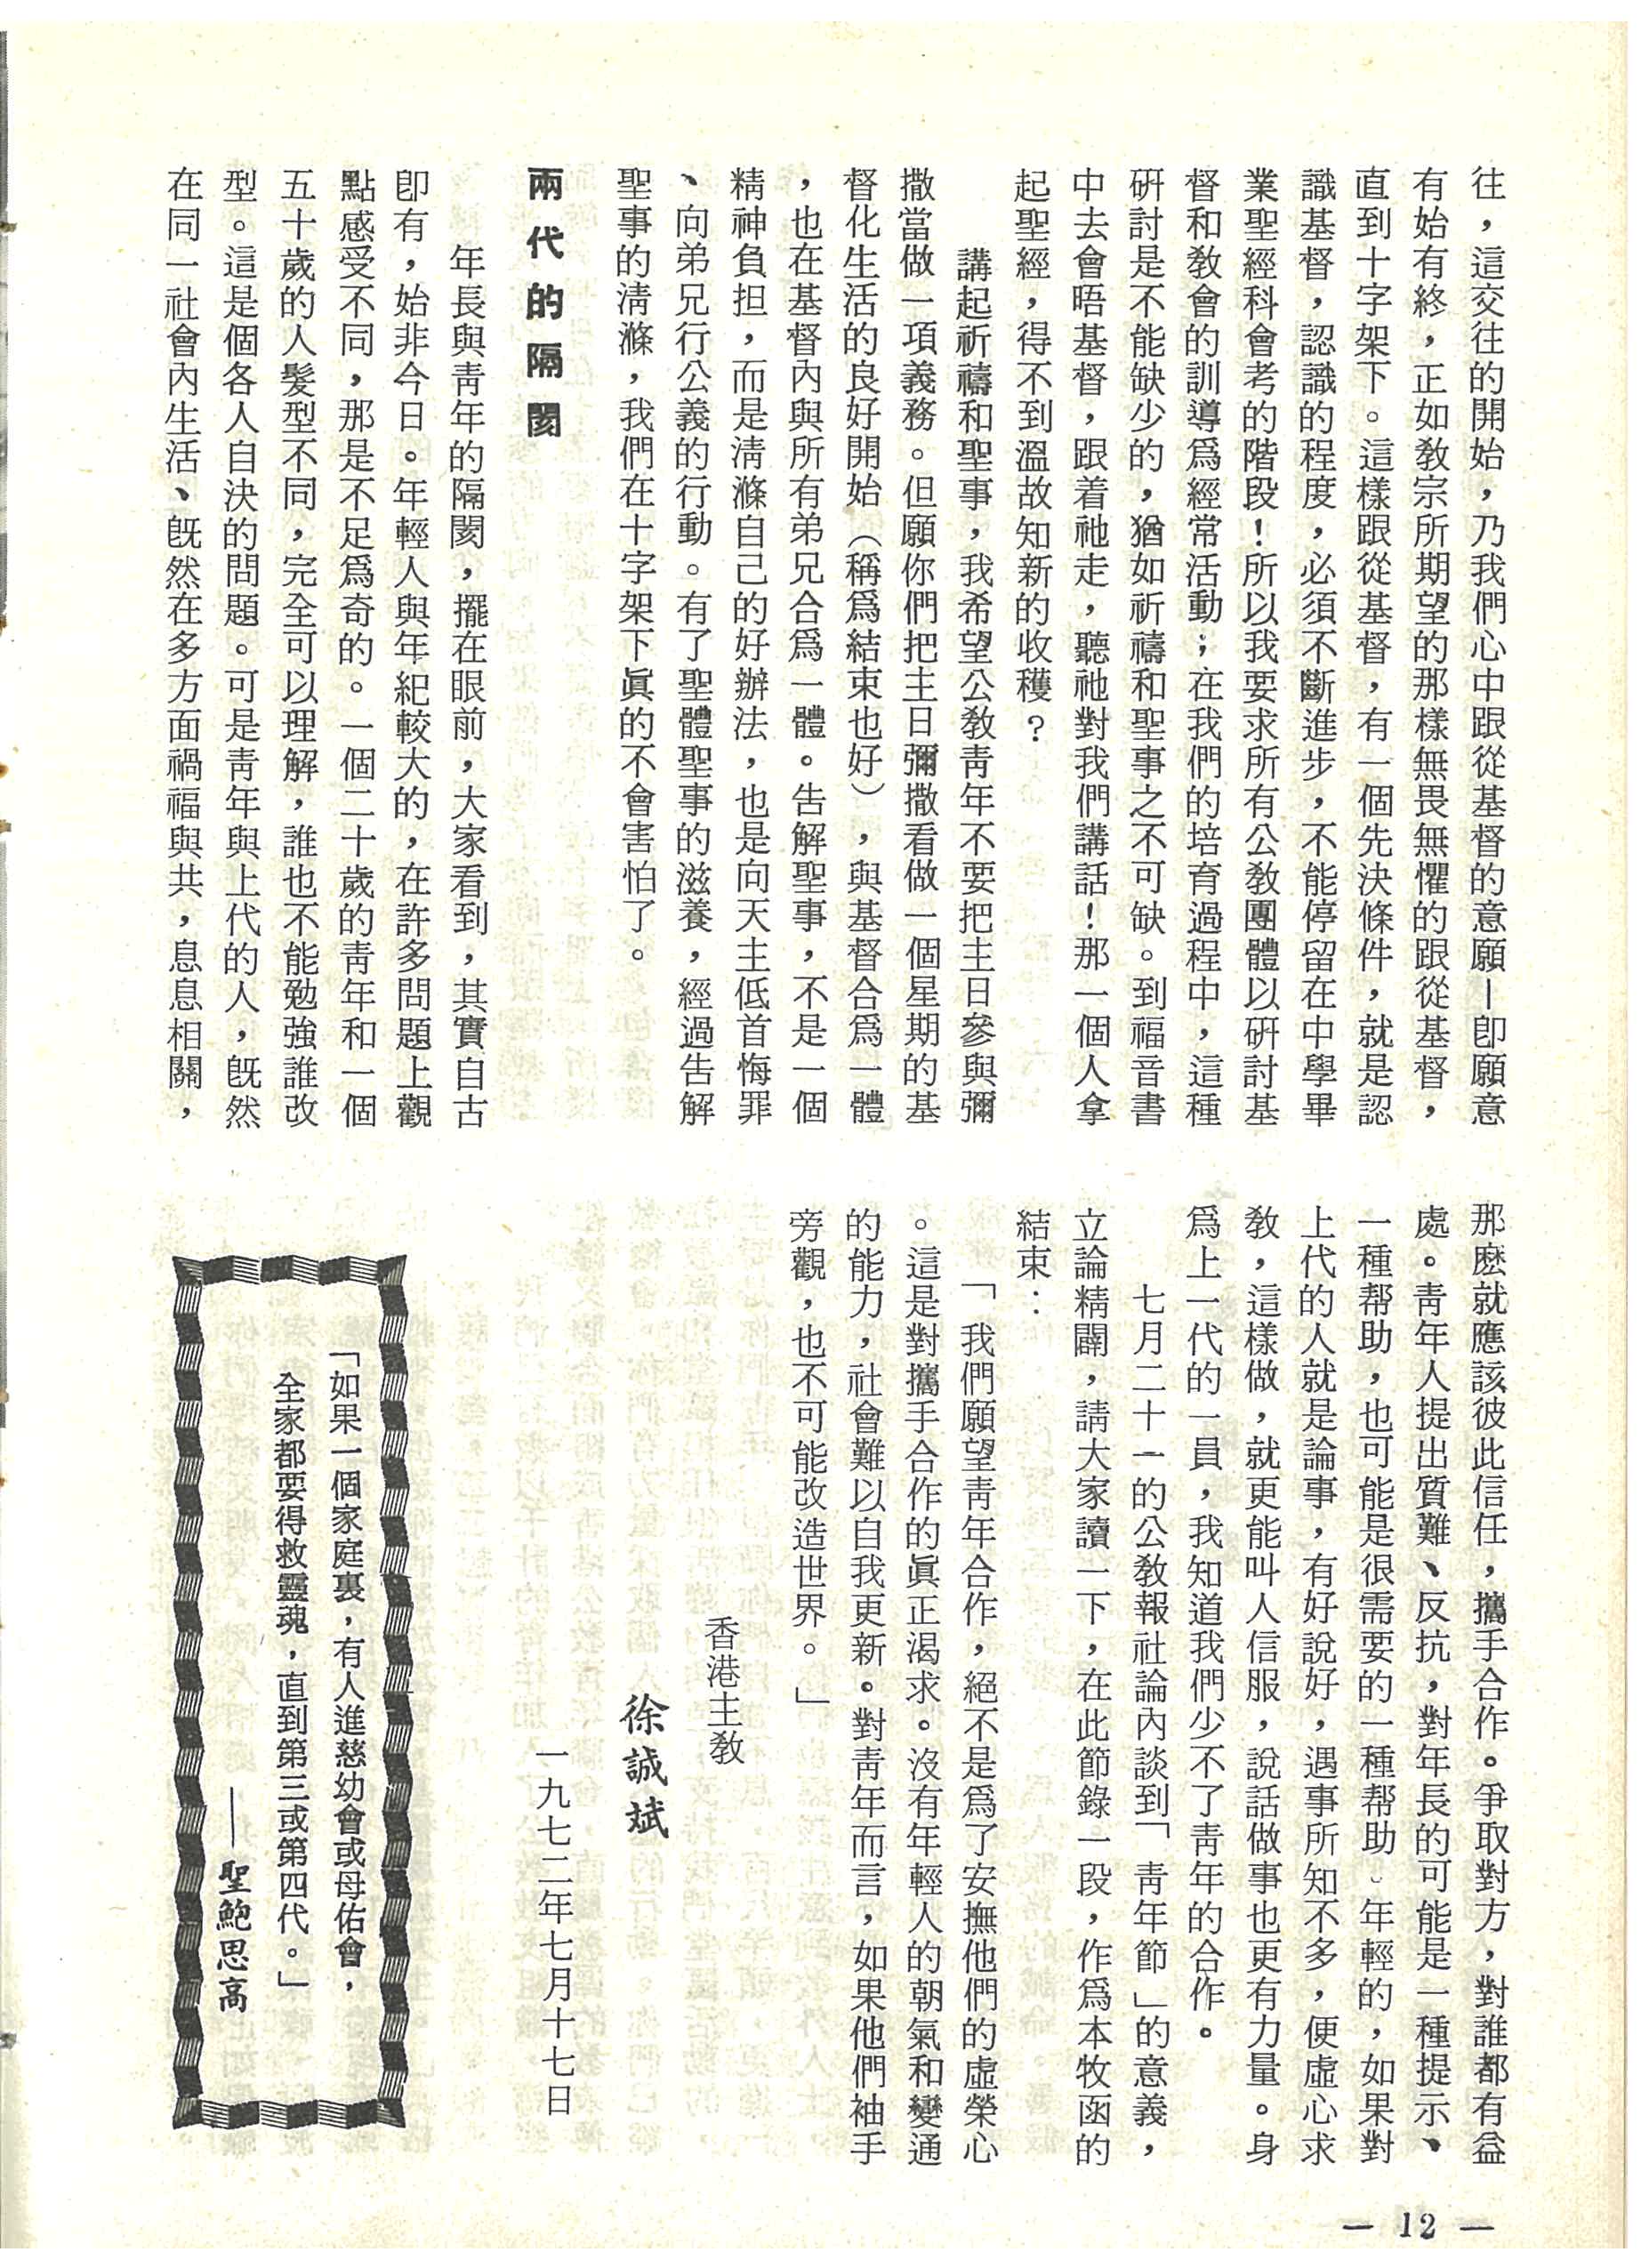 往，這交往的開始，乃我們心中跟從基督的意願—卽願意
有始有終，正如敎宗所期望的那樣無畏無懼的跟從基督，
直到十字架下。這樣跟從基督，有一個先決條件，就是認
識基督，認識的程度，必須不斷進步，不能停留在中學畢
業聖經科會考的階段！所以我要求所有公敎團體以硏討基
督和敎會的訓導爲經常活動；在我們的培育過程中，這種
硏討是不能缺少的，猶如祈禱和聖事之不可缺。到福音書
中去會晤基督，跟着祂走，聽祂對我們講話！那一個人拿
起聖經，得不到溫故知新的收穫？
講起祈禱和聖事，我希望公敎靑年不要把主日參與彌
撒當做一項義務。但願你們把主日彌撒看做一個星期的基
督化生活的良好開始（稱爲結束也好），與基督合爲一體
，也在基督內與所有弟兄合爲一體。吿解聖事，不是一個
精神負担，而是淸滌自己的好辦法，也是向天主低首悔罪
、向弟兄行公義的行動。有了聖體聖事的滋養，經過吿解
聖事的淸滌，我們在十字架下眞的不會害怕了。
兩代的隔閡
年長與靑年的隔閡，擺在眼前，大家看到，其實自古
卽有，始非今日。年輕人與年紀較大的，在許多問題上觀
點感受不同，那是不足爲奇的。一個二十歲的靑年和一個
五十歲的人髮型不同，完全可以理解，誰也不能勉強誰改
型。這是個各人自決的問題。可是靑年與上代的人，旣然
在同一社會內生活、旣然在多方面禍福與共，息息相關，
那麽就應該彼此信任，攜手合作。爭取對方，對誰都有益
處。靑年人提出質難、反抗，對年長的可能是一種提示、
一種帮助，也可能是很需要的一種帮助。年輕的，如果對
上代的人就是論事，有好說好，遇事所知不多，便虛心求
敎，這樣做，就更能叫人信服，說話做事也更有力量。身
爲上一代的一員，我知道我們少不了靑年的合作。
七月二十一的公敎報社論內談到「靑年節」的意義，
立論精闢，請大家讀一下，在此節錄一段，作爲本牧函的
結束：
「我們願望靑年合作，絕不是爲了安撫他們的虛榮心
。這是對攜手合作的眞正渴求。沒有年輕人的朝氣和變通
的能力，社會難以自我更新。對靑年而言，如果他們袖手
旁觀，也不可能改造世界。」
香港主敎
徐誠斌
一九七二年七月十七日
「如果一個家庭裏，有人進慈幼會或母佑會，
全家都要得救靈魂，直到第三或第四代。」
——聖鮑思高
— 12 —